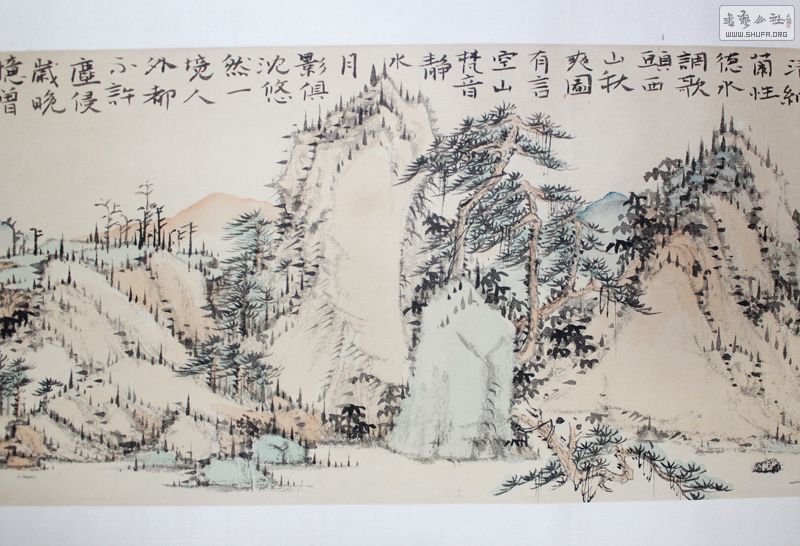 清納
蘭性
德水
調歌
頭西
山秋
爽圖
有言
空山
梵音
靜
水
月
影俱
沈悠
然一
境人
外都
不許
塵侵
歲晚
憶曾
書藝公社
WWW.SHUFA.ORG